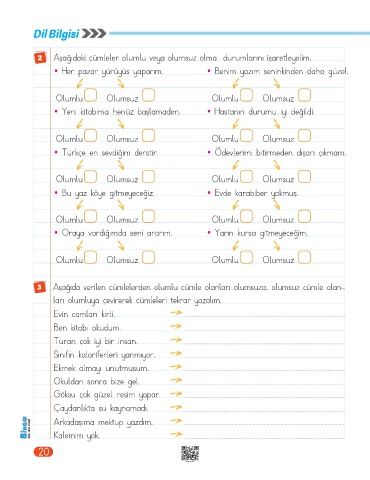 Dil Bilgisi
2 Aşağıdaki cümleler olumlu veya olumsuz olma durumlarını işaretleyelim.
• Her pazar yürüyüş yaparım.
• Benim yazım seninkinden daha güzel.
Olumlu Olumsuz
Olumlu Olumsuz
• Yeni kitabıma henüz başlamadım.
• Hastanın durumu iyi değildi.
Olumlu Olumsuz
Olumlu Olumsuz
• Türkçe en sevdiğim derstir.
• Ödevlerimi bitirmeden dışarı çıkmam.
Olumlu Olumsuz
Olumlu Olumsuz
• Bu yaz köye gitmeyeceğiz.
• Evde karabiber yokmuş.
Olumlu Olumsuz
Olumlu Olumsuz
• Oraya vardığımda seni ararım.
• Yarın kursa gitmeyeceğim.
Olumlu Olumsuz
Olumlu Olumsuz
3 Aşağıda verilen cümlelerden olumlu cümle olanları olumsuza, olumsuz cümle olan-
ları olumluya çevirerek cümleleri tekrar yazalım.
Evin camları kirli.
Ben kitabı okudum.
Turan çok iyi bir insan.
Sınıfın kaloriferleri yanmıyor.
Ekmek almayı unutmuşum.
Okuldan sonra bize gel.
Göksu çok güzel resim yapar.
Çaydanlıkta su kaynamadı.
Arkadaşıma mektup yazdım.
Kalemim yok.
20